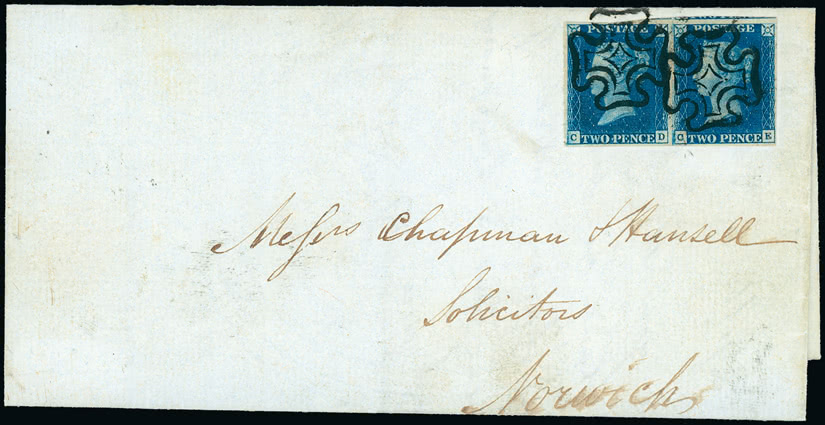 POSTAGE POSTAGE
C D C E
TWO PENCE TWO PENCE
Messrs Chapman & Hansell
Solicitors
Norwich